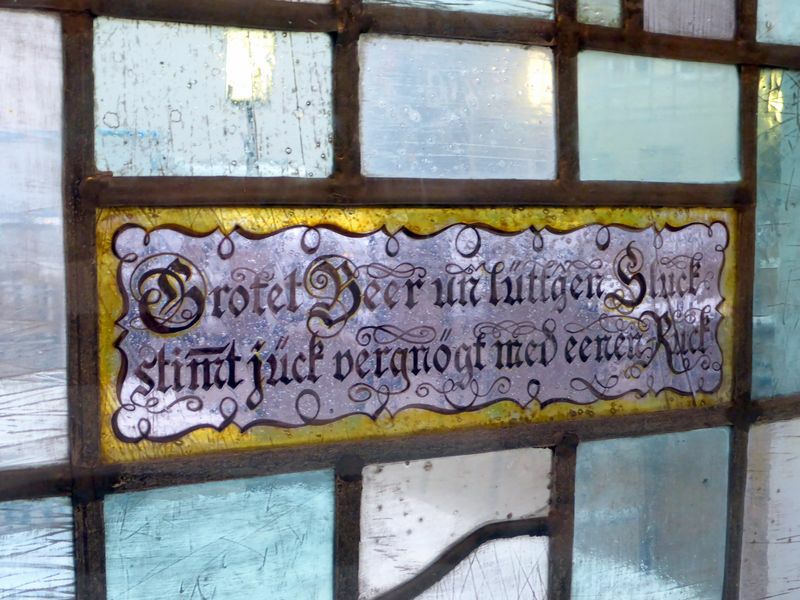 Grotet Beer un lüttgen Sluck
stim̅t jück vergnögt med eenen Ruck